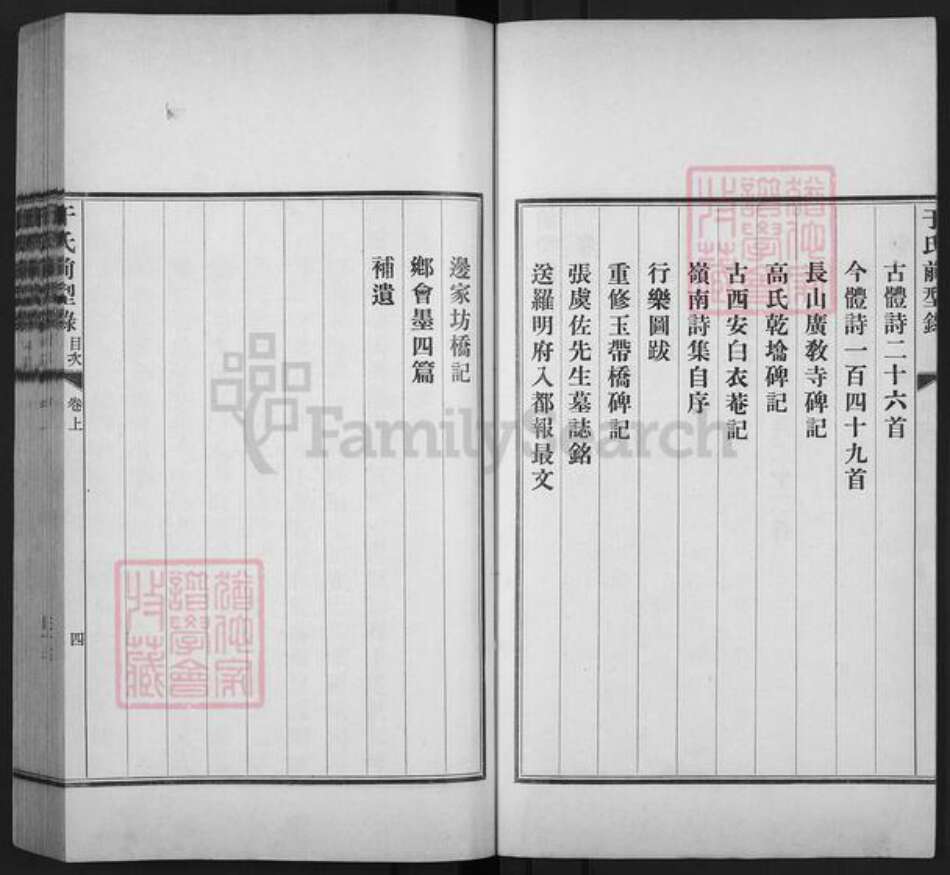 于氏前型錄
古體詩二十六首
今體詩一百四十九首
長山廣教寺碑記
高氏乾墖碑記
古西安白衣菴記
嶺南詩集自序
行樂圖跋
重修玉帶橋碑記
張虞佐先生墓誌銘
送羅明府入都報最文
邊家坊橋記
鄉會墨四篇
補遺
于氏前型錄 目次 卷上
四
FamilySearch
譜學會
收藏